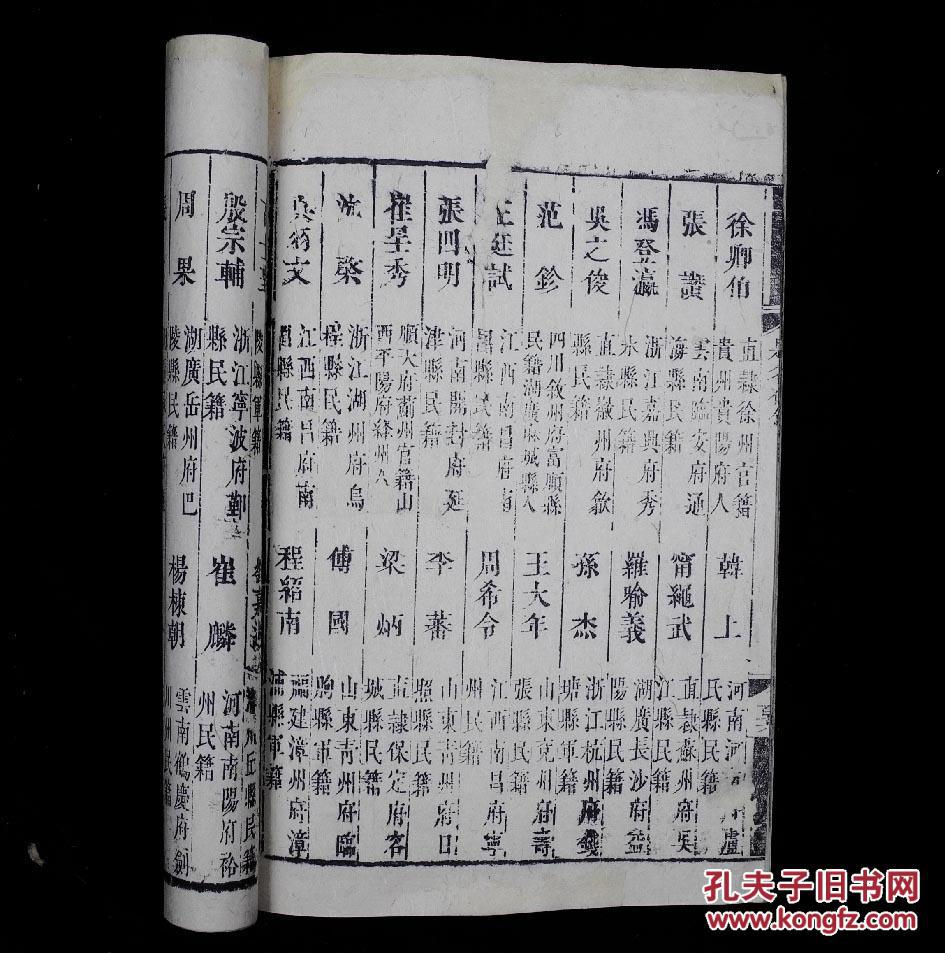 徐卿伯 直隸徐州官籍貴州貴陽府人 韓上 河南河 盧氏縣民籍
張讚 雲南臨安府通海縣民籍 甯繩武 直隸蘇州府吳江縣民籍
馮登瀛 浙江嘉興府秀水縣民籍 羅喻義 湖廣長沙府益陽縣民籍
吳之俊 直隸徽州府歙縣民籍 孫杰 浙江杭州府錢塘縣軍籍
范鈐 四川敘州府富順縣民籍湖廣麻城縣人 王大年 山東兗州府壽張縣民籍
王廷試 江西南昌府南昌縣民籍 周希令 江西南昌府寧州民籍
張四明 河南開封府延津縣民籍 李蕃 山東青州府日照縣民籍
崔星秀 順天府薊州官籍山西平陽府絳州人 梁炳 直隸保定府容城縣民籍
沈棨 浙江湖州府烏程縣民籍 傅國 山東青州府臨朐縣軍籍
吳羽文 江西南昌府南昌縣民籍 程紹南 福建漳州府漳浦縣軍籍
陵縣軍籍 丘縣民籍
殷宗輔 浙江寧波府鄞縣民籍 崔麟 河南南陽府裕州民籍
周果 湖廣岳州府巴陵縣民籍 楊棟朝 雲南鶴慶府劍川州民籍
孔夫子旧书网
KONGFZ.COM